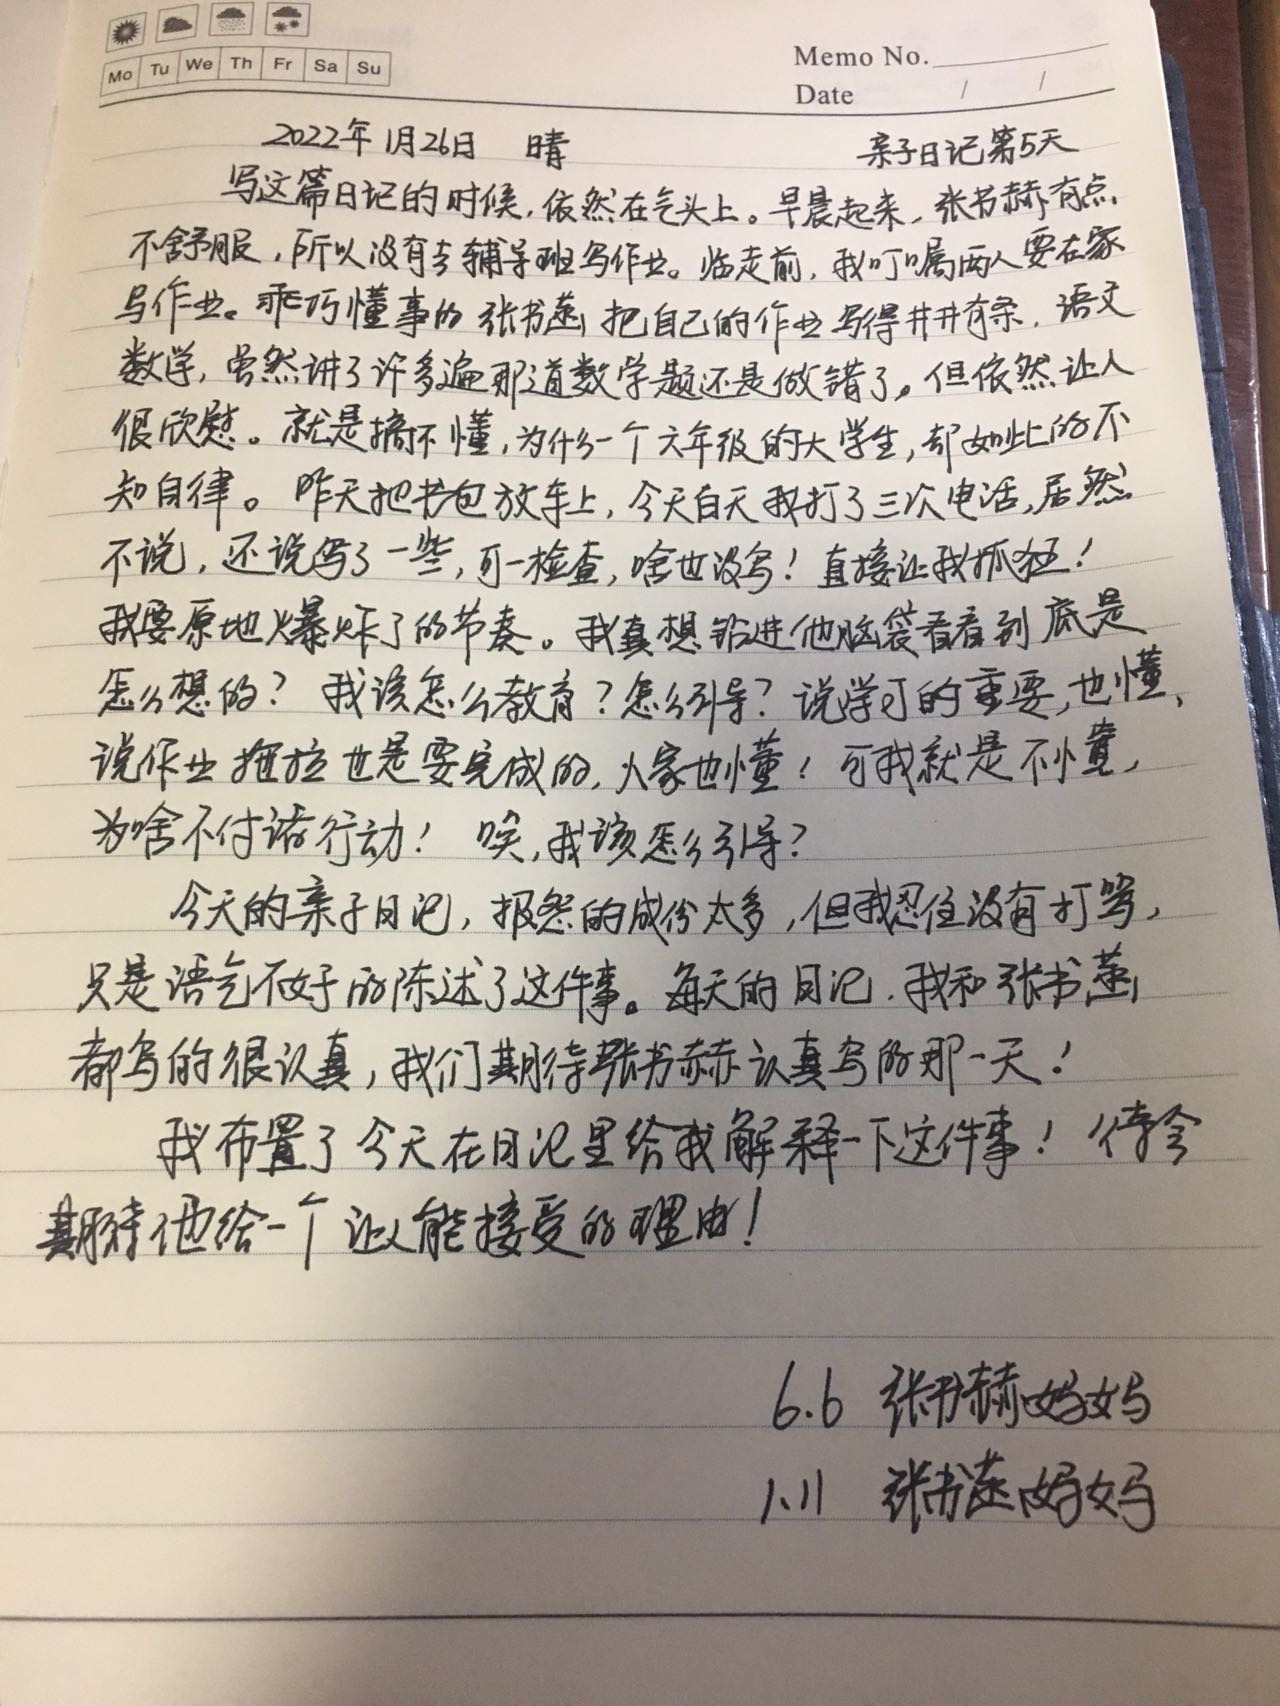 Mo Tu We Th Fr Sa Su
Memo No.
Date / /
2022年1月26日 晴 亲子日记第5天
写这篇日记的时候,依然在气头上。早晨起来,张书赫有点
不舒服,所以没有去辅导班写作业。临走前,我叮嘱两人要在家
写作业。乖巧懂事的张书 把自己的作业写得井井有条,语文
数学,虽然讲了许多遍那道数学题还是做错了。但依然让人
很欣慰。就是搞不懂,为什么一个六年级的大学生,却如此的不
知自律。昨天把书包放车上,今天白天我打了三次电话,居然
不说,还说写了一些,可一检查,啥也没写!直接让我抓狂!
我要原地爆炸了的节奏。我真想钻进他脑袋看看到底是
怎么想的?我该怎么教育?怎么引导?说学习的重要,也懂、
说作业拖拉也是要完成的,人家也懂!可我就是不懂,
为啥不付诸行动!唉,我该怎么引导?
今天的亲子日记,报怨的成份太多,但我忍住没有打骂,
只是语气不好的陈述了这件事。每天的日记,我和张书
都写的很认真,我们期待张书赫认真写的那一天!
我布置了今天在日记里给我解释一下这件事!待会
期待他给一个让人能接受的理由!
6.6 张书赫妈妈
1.11 张书 妈妈